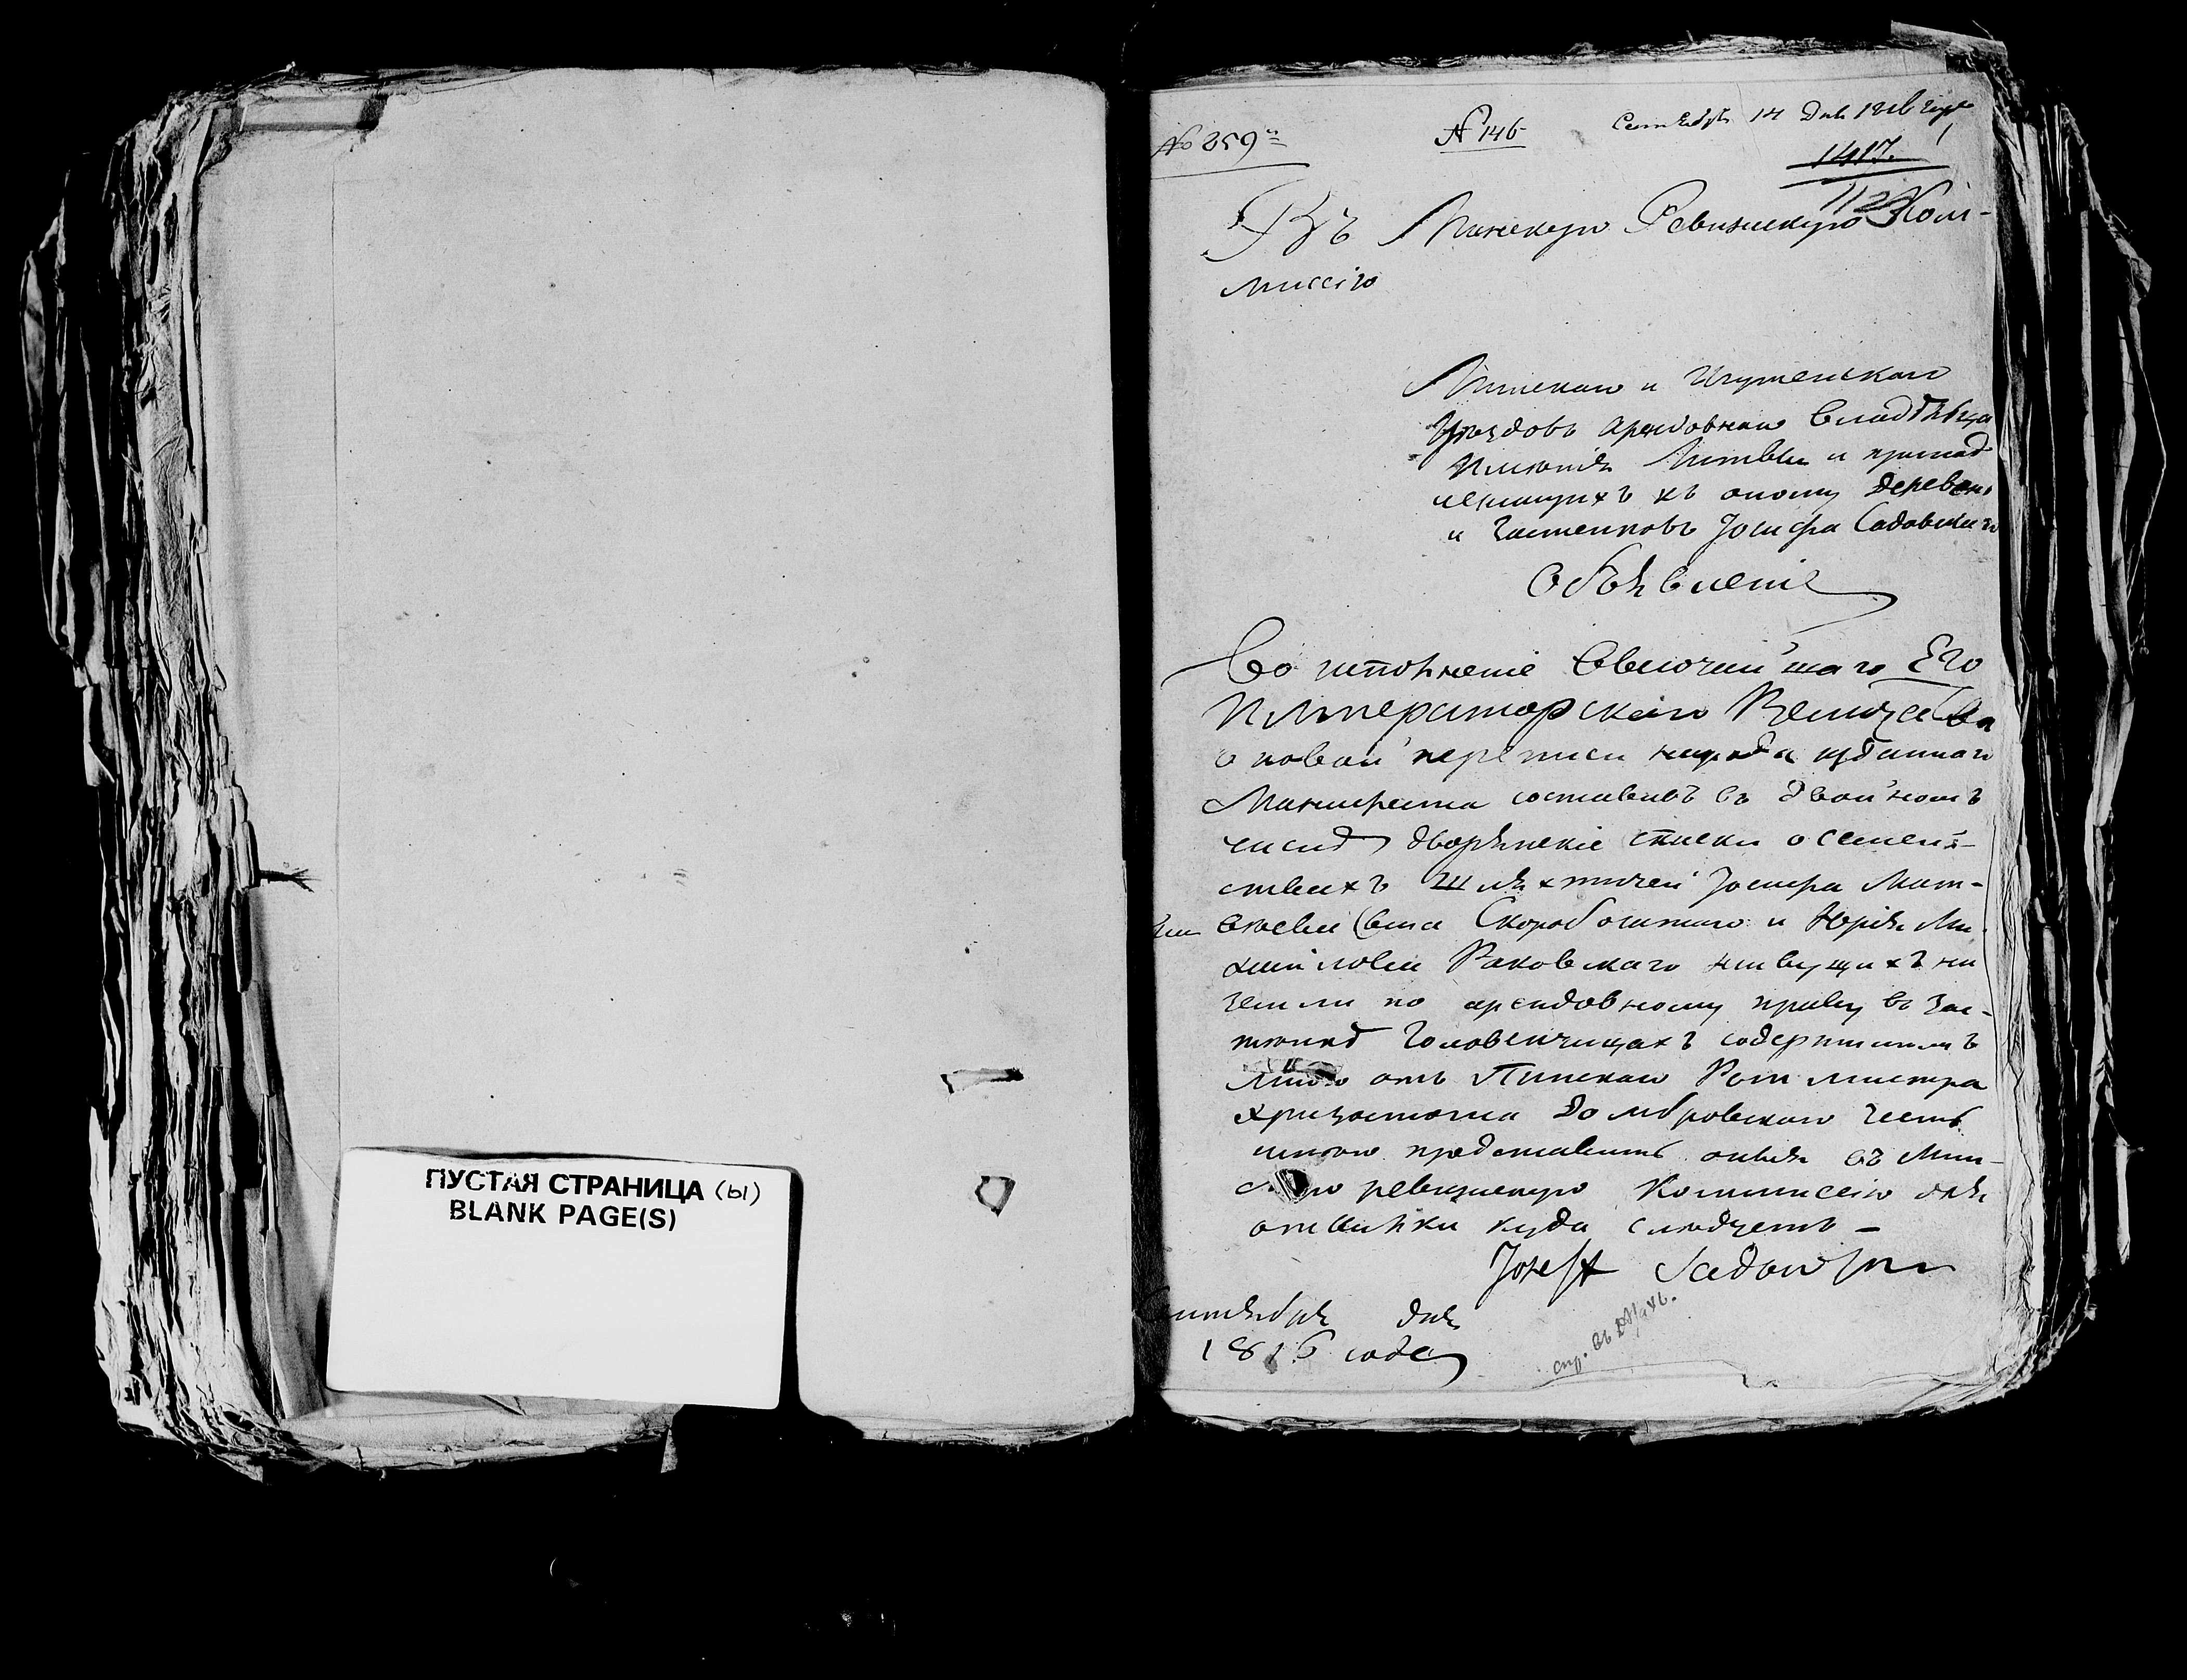 ПУСТАЯ СТРАНИЦА (ы)
BLANK PAGE(S)
№ 259
№ 146
Сентября 14 дня 1816 года
1417.
Въ Минскую Ревизскую Ком-
миссію
Минскаго и Игуменскаго
уѣздовъ арендовнаго владѣльца
имѣнія Литвы и принад
лежащихъ къ оному деревень
и застенковъ Іосифа Садовскаго
Объявленіе
Во исполненіе Высочайшаго Его
Императорскаго Величества
о новой переписи народа изданнаго
Манифеста составивъ въ двойномъ
числѣ дворянскіе списки о семей-
ствахъ шляхтичей Іосифа Мат-
вѣева сына Скоробогатаго и Юрія Ми-
хайлова Раковскаго живущихъ на
земли по арендовному праву въ зас-
тенкѣ Головенчицахъ содержимомъ
мною отъ Пинскаго Ротмистра
Хризостома Домбровскаго честь
имѣю представить оныя въ Мин-
скую ревизскую Коммиссію для
отсылки куда слѣдуетъ –
Josefh Sadowski
Сентября дня
1816 года
спр. въ